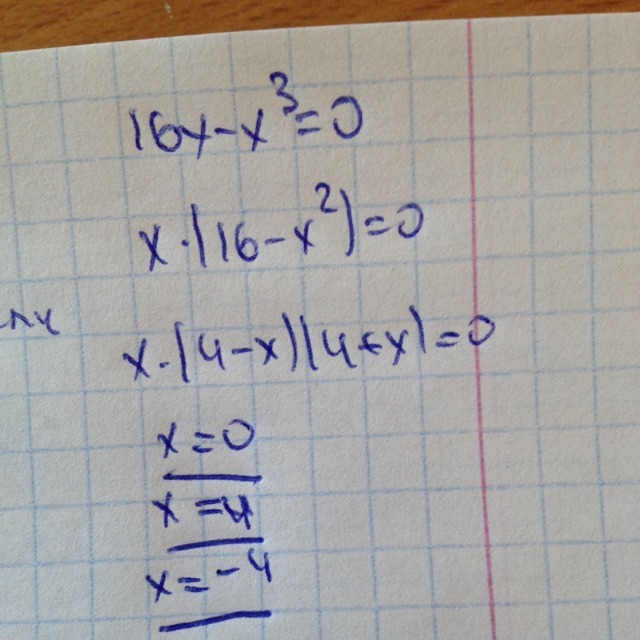 16x-x³=0
x·(16-x²)=0
x·(4-x)(4+x)=0
x=0
x=4
x=-4